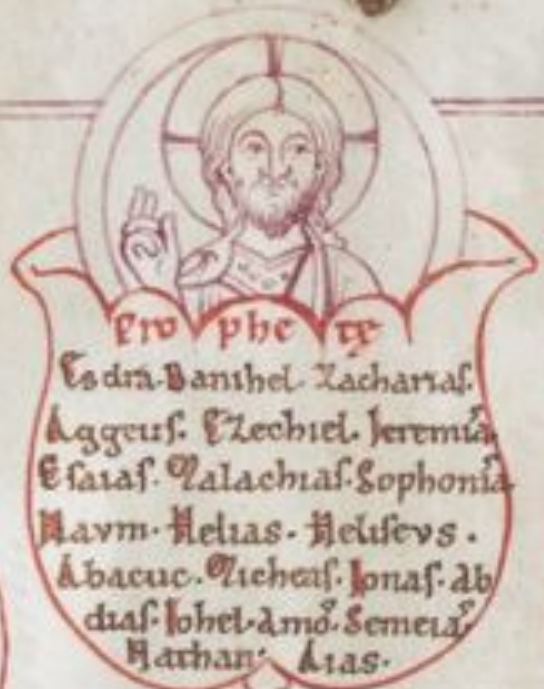 Pro phe tę
Esdra. Danihel. Zacharias.
Aggeus. Ezechiel. Ieremias.
Esaias. Malachias. Sophonias.
Naum. Helias. Heliseus.
Abacuc. Micheas. Ionas. Ab
dias. Iohel. Amos. Semeias.
Nathan. Aias.